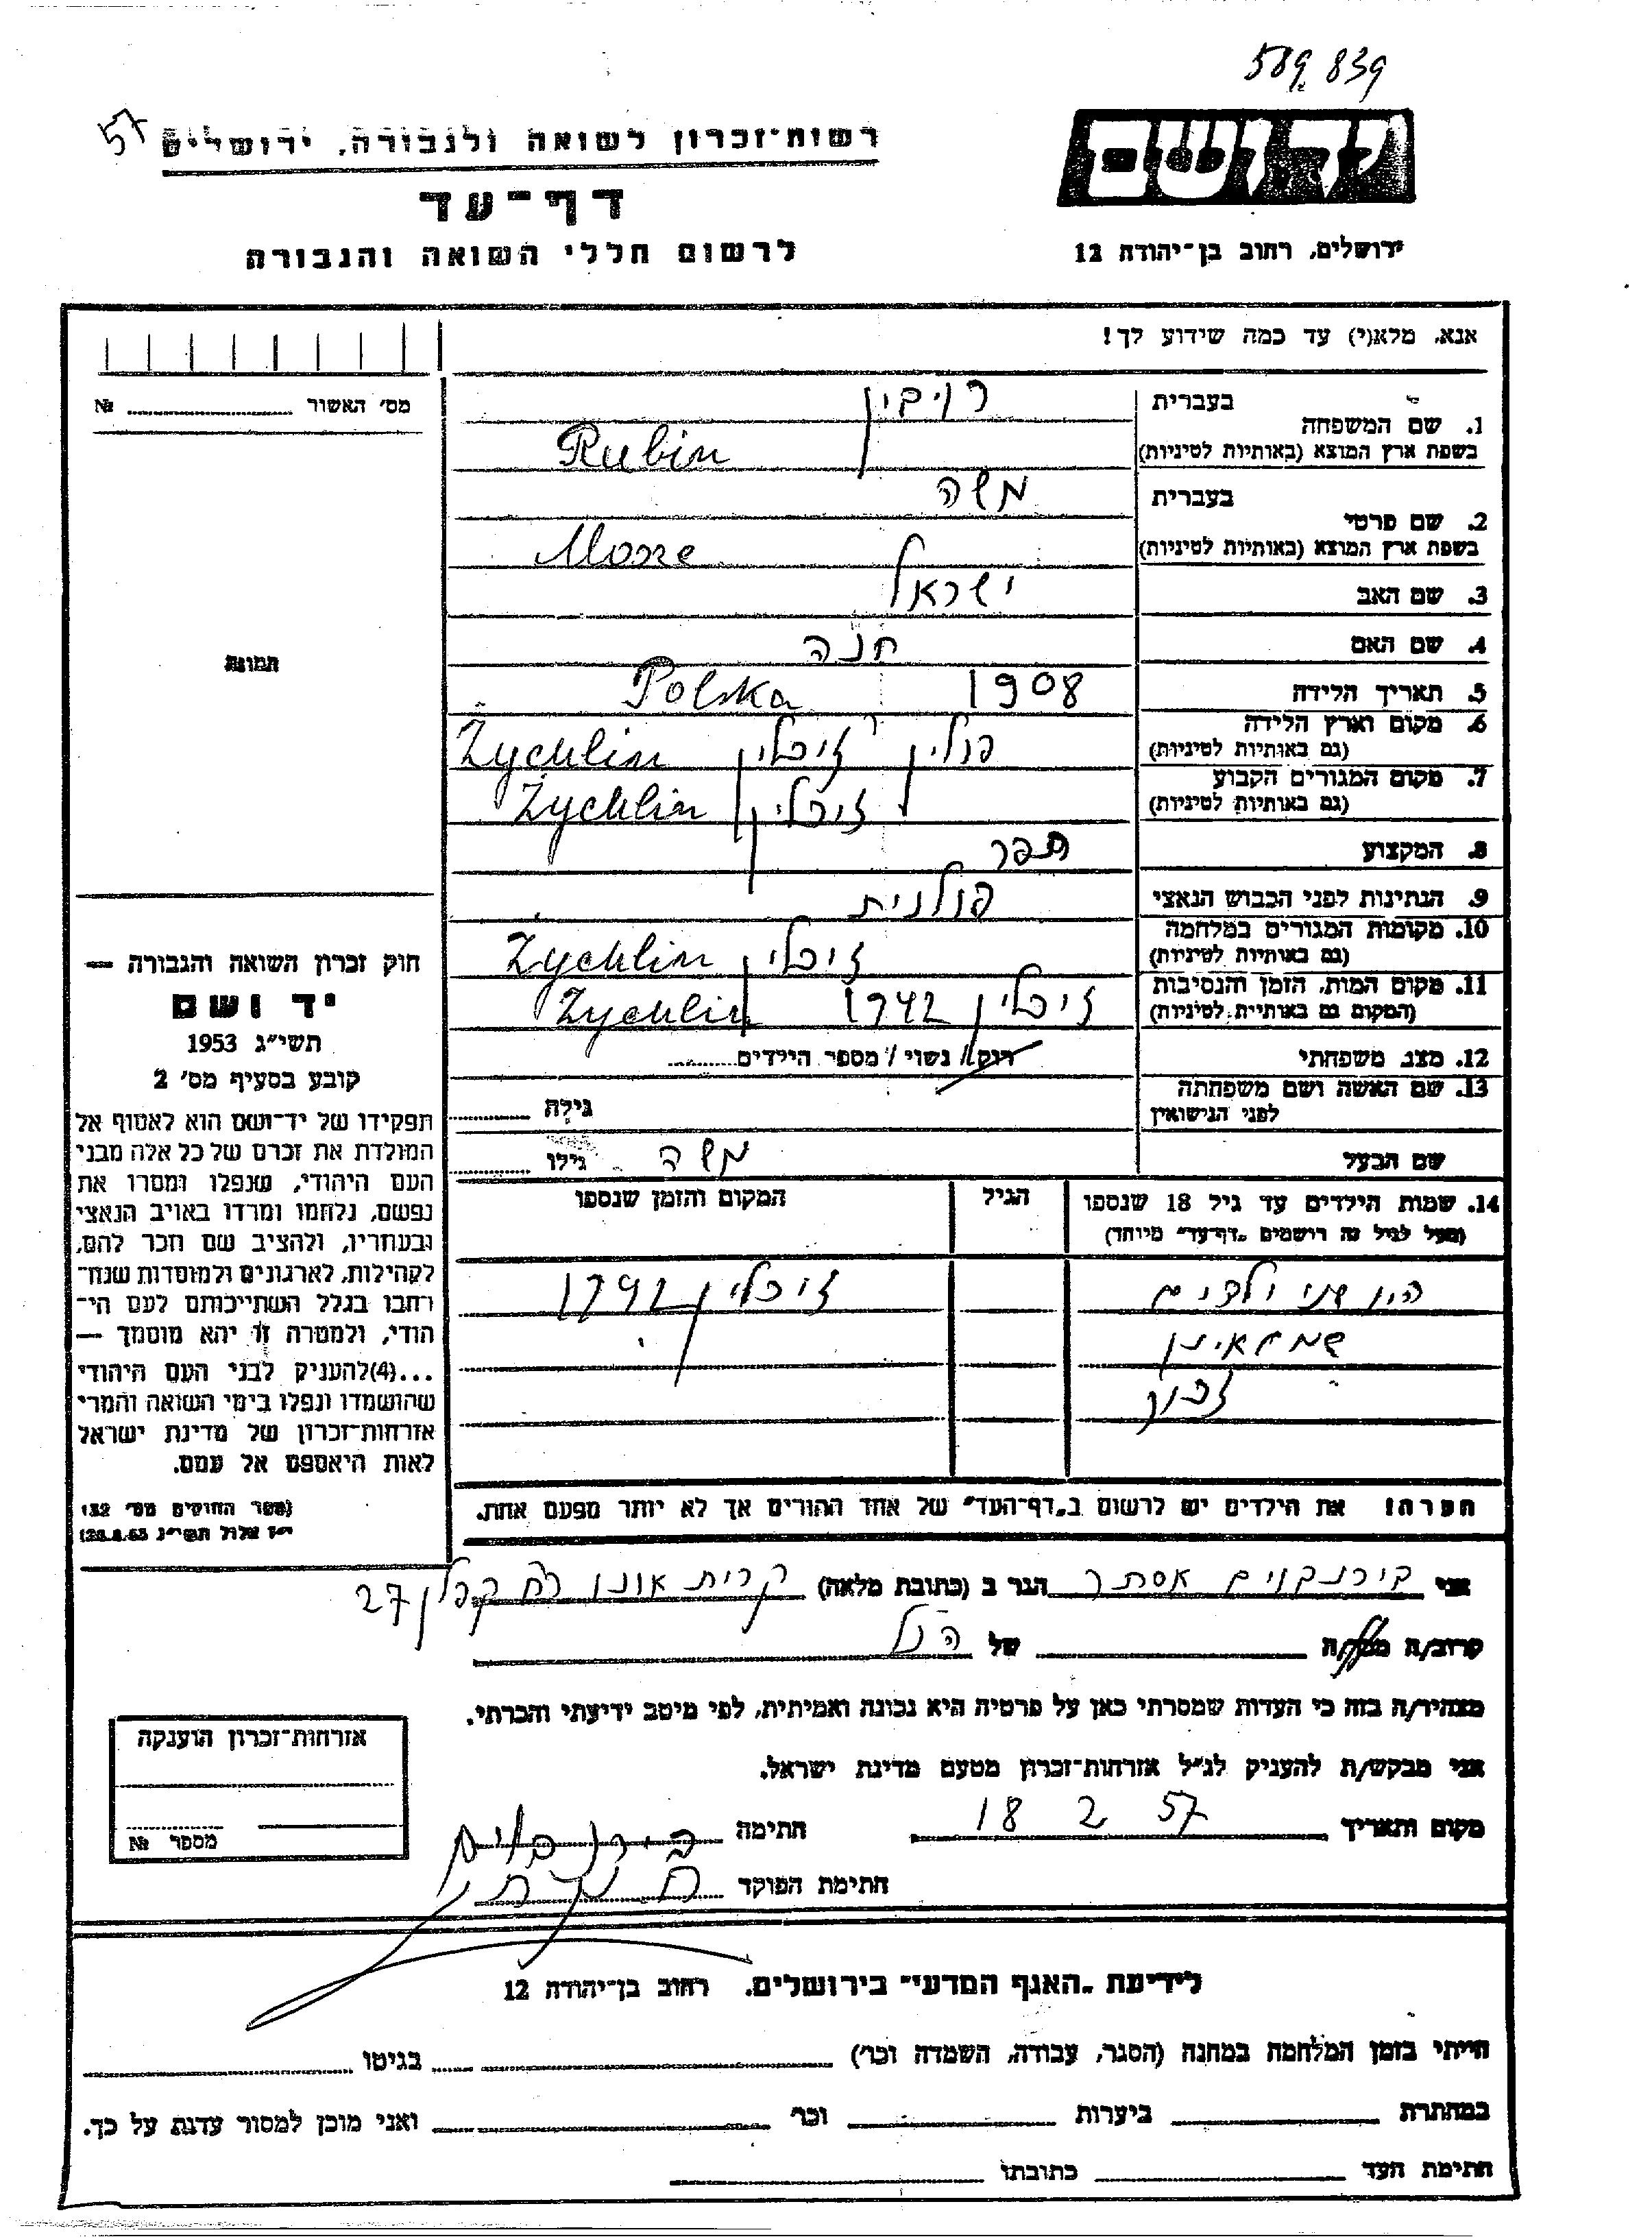 589839
57
רשות-זכרון לשואה ולגבורה, ירושלים
דף-עד
לרשום חללי השואה והגבורה
יד ושם
ירושלים, רחוב בן-יהודה 12
אנא, מלא(י) עד כמה שידוע לך!
מס׳ האשור № 
תמונה
1. שם המשפחה
בעברית רויבין
בשפת ארץ המוצא (באותיות לטיניות) Rubin
2. שם פרטי
בעברית משה
בשפת ארץ המוצא (באותיות לטיניות)
3. שם האב ישראל
4. שם האם חנה
5. תאריך הלידה 1908 Polska
6. מקום וארץ הלידה פולין זיכלין Żychlin
(גם באותיות לטיניות)
7. מקום המגורים הקבוע זיכלין Żychlin
(גם באותיות לטיניות)
8. המקצוע תפר
9. הנתינות לפני הכבוש הנאצי פולנית
10. מקומות המגורים במלחמה זיכלין Żychlin
(גם באותיות לטיניות)
11. מקום המות, הזמן והנסיבות זיכלין 1942 Zychlin
(המקום גם באותיות לטיניות)
12. מצב משפחתי רוק / נשוי / מספר הילדים
13. שם האשה ושם משפחתה
לפני הנישואין גילה
שם הבעל משה גילו
14. שמות הילדים עד גיל 18 שנספו הגיל המקום והזמן שנספו
(מעל לגיל זה רושמים "דף-עד" מיוחד)
היו שני ילדים זיכלין 1942
שם
זכור
הערה! את הילדים יש לרשום ב"דף-העד" של אחד ההורים אך לא יותר מפעם אחת.
חוק זכרון השואה והגבורה —
יד ושם
תשי״ג 1953
קובע בסעיף מס׳ 2
תפקידו של יד-ושם הוא לאסוף אל
המולדת את זכרם של כל אלה מבני
העם היהודי, שנפלו ומסרו את
נפשם, נלחמו ומרדו באויב הנאצי
ובעוזריו, ולהציב שם וזכר להם,
לקהילות, לארגונים ולמוסדות שנח-
רבו בגלל השתייכותם לעם הי-
הודי, ולמטרה זו יהא מוסמך —
...(4) להעניק לבני העם היהודי
שהושמדו ונפלו בימי השואה והמרי
אזרחות-זכרון של מדינת ישראל
לאות היאספם אל עמם.
(ספר החוקים מס׳ 132
י״ז אלול תשי״ג 28.8.53)
אני בירנבוים אסתר הגר ב (כתובת מלאה) קרית אונו רח קפלן 27
קרוב/ה של הנל
מצהיר/ה בזה כי העדות שמסרתי כאן על פרטיה היא נכונה ואמיתית, לפי מיטב ידיעתי והכרתי.
אני מבקש/ת להעניק לנ״ל אזרחות-זכרון מטעם מדינת ישראל.
מקום ותאריך 18 2 57 חתימה בירנבוים
חתימת הפוקד
אזרחות-זכרון הוענקה
מספר №
לידיעת "האגף המדעי" בירושלים. רחוב בן-יהודה 12
הייתי בזמן המלחמה במחנה (הסגר, עבודה, השמדה וכר׳) בגיטו
במחתרת ביערות וכר׳ ואני מוכן למסור עדות על כך.
חתימת העד כתובתו